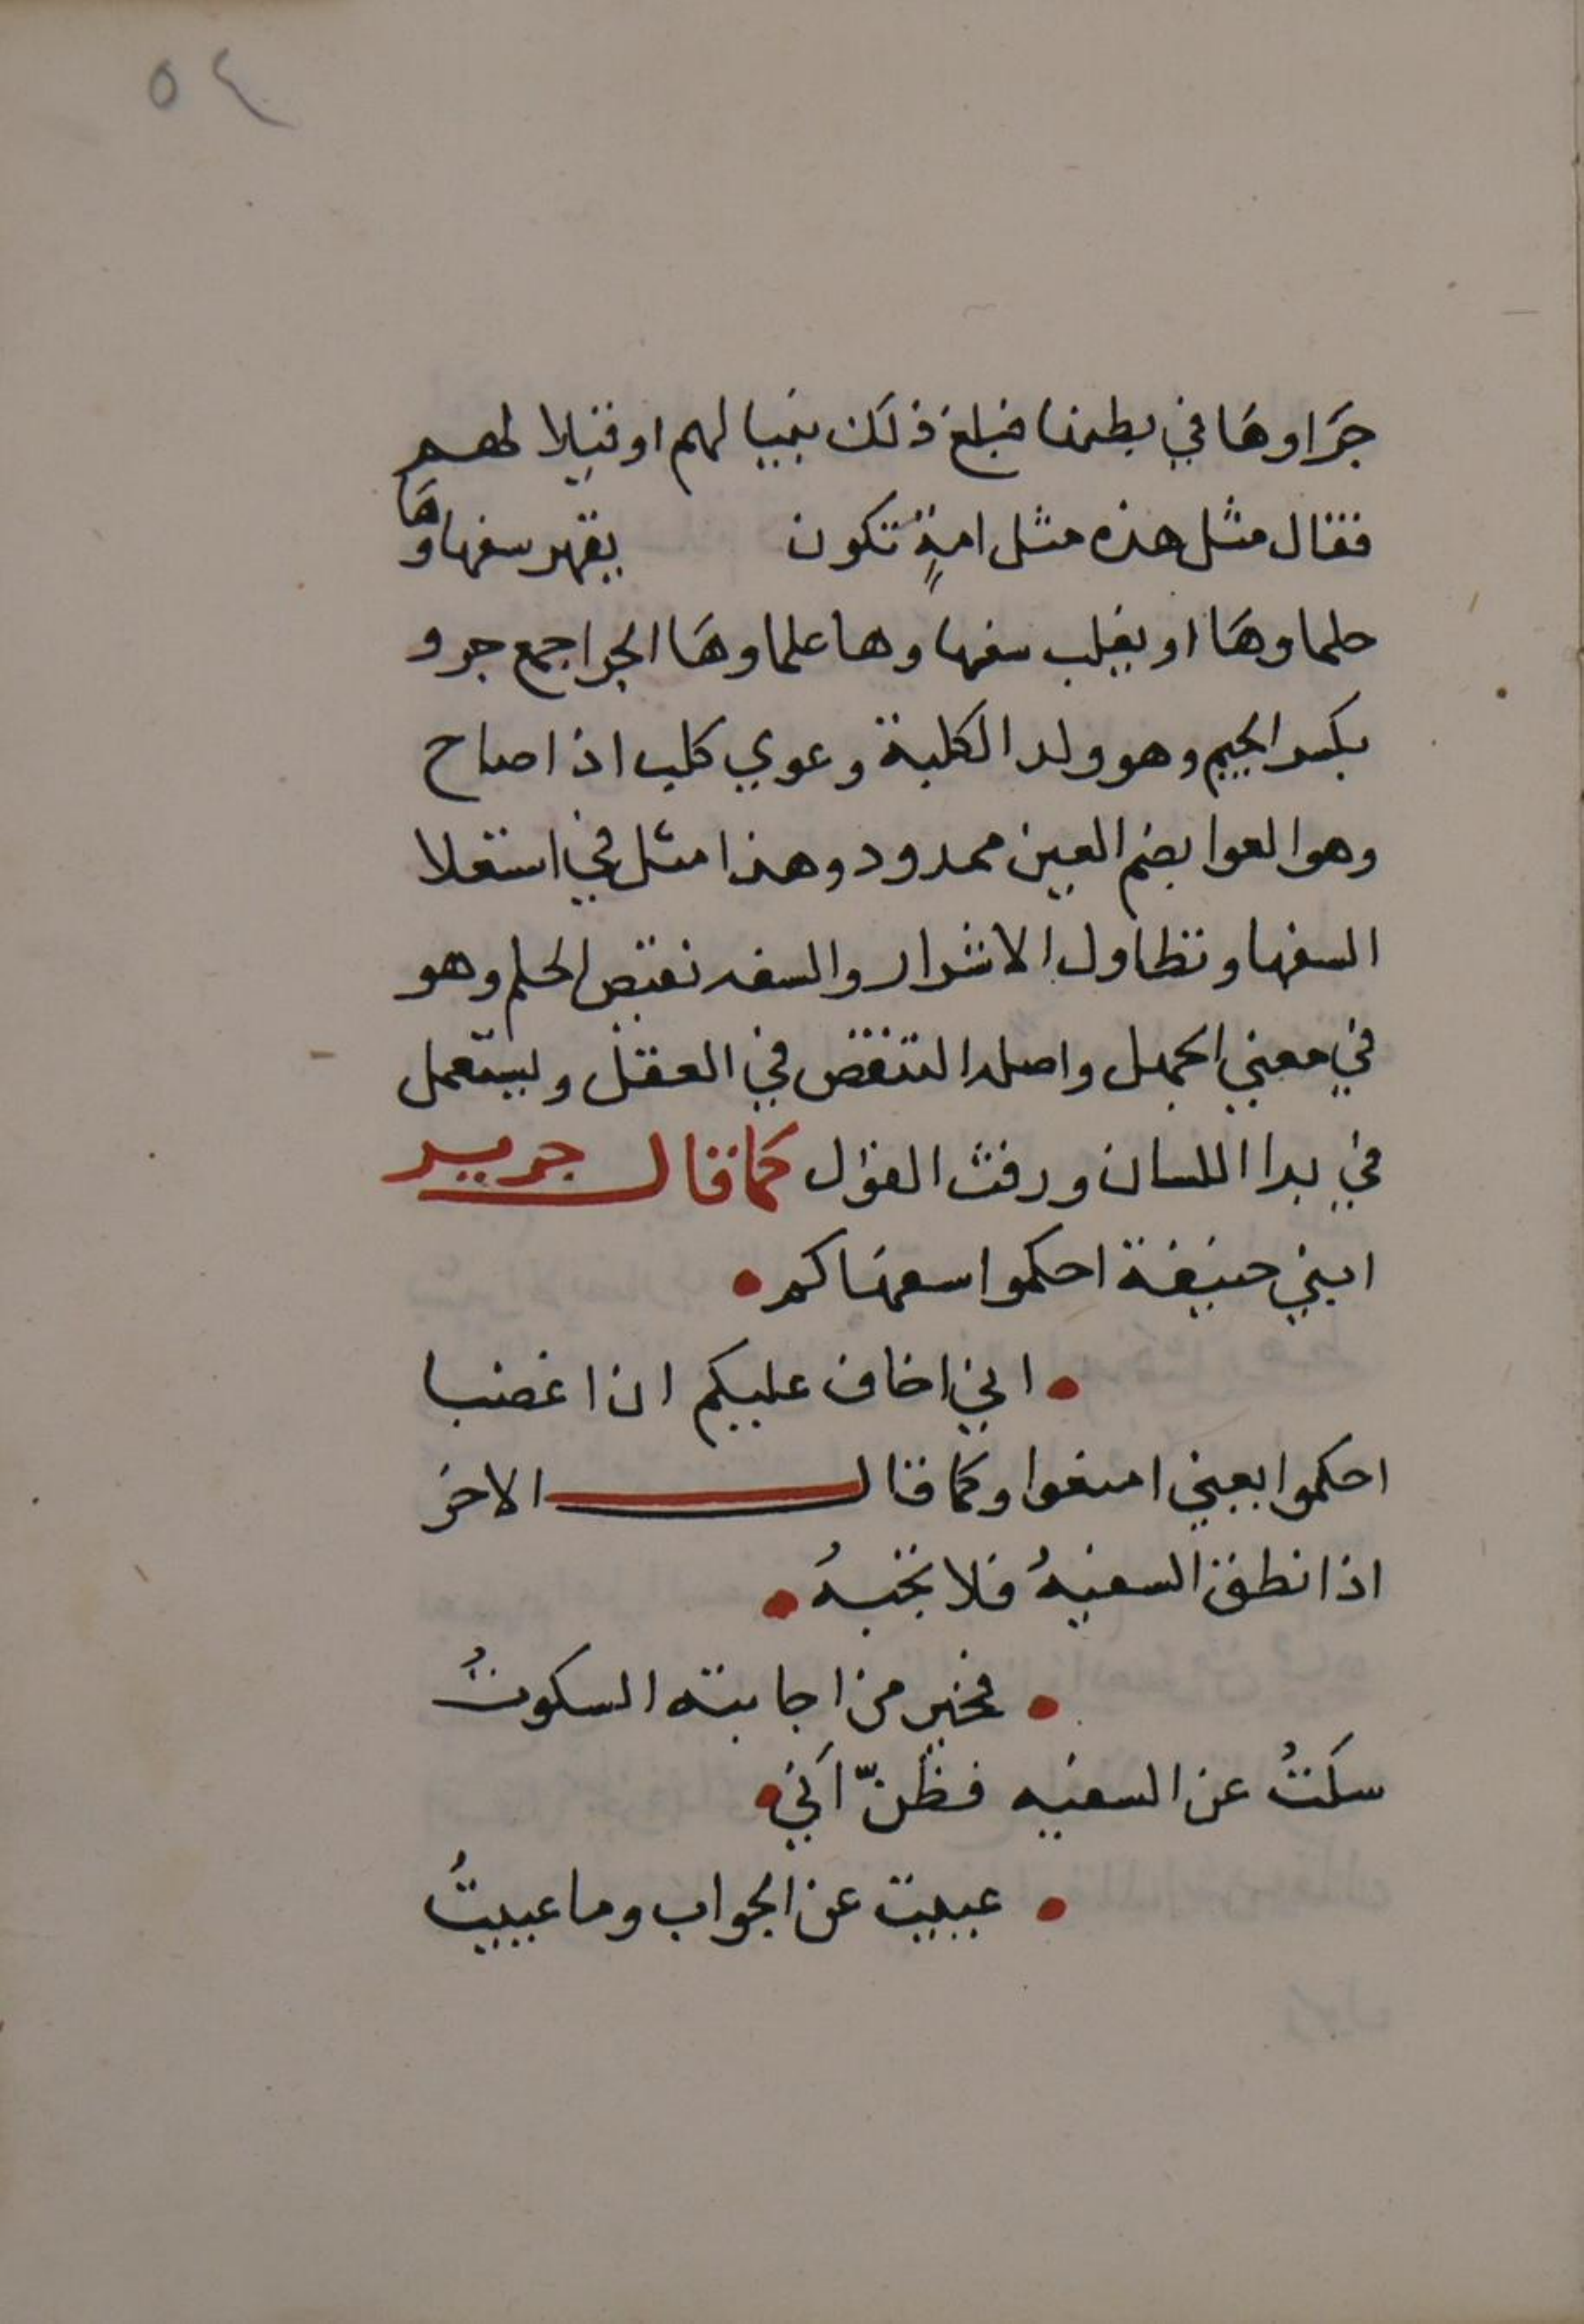 ٥٤
جَراوهَا في بطنها فبلغ ذلك نبيا لهم او قيلا لهم
فقال مثل هذه مثل امةٍ تكون يقهر سفهاوهَا
حلماوهَا او يغلب سفهاوها علماوهَا الجرا جمع جرو
بكسر الجيم وهو ولد الكلبة وعوي كلب اذا صاح
وهو العوا بضم العين ممدود وهذا مثل في استعلا
السفها وتطاول الاشرار والسفه نقيض الحلم وهو
في معني الجهل واصله النقص في العقل ويستعمل
في بذا اللسان ورفث القول كما قال جرير
ابني حنيفة احكموا سفهاكم
اني اخاف عليكم ان اغضبا
احكموا بعيني امنعوا وكما قال الاخر
اذا نطق السفيهُ فلا تجبهُ
فخير من اجابته السكوتُ
سكتُ عن السفيه فظنّ اَني
عييت عن الجواب وما عييتُ